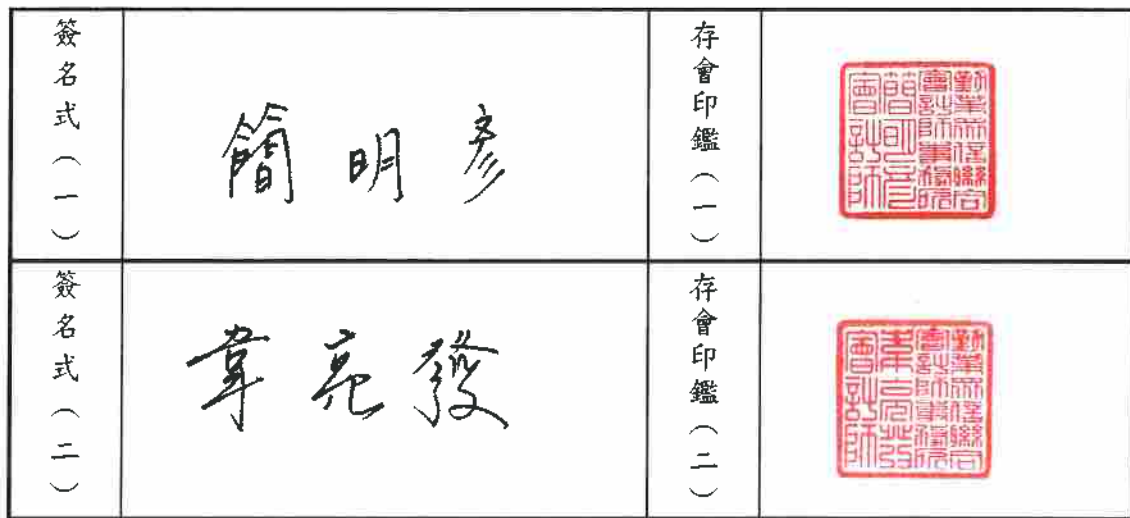 簽名式（一）
簡明彥
存會印鑑（一）
勤業眾信聯合
會計師事務所
簡明彥
會計師
簽名式（二）
韋亮發
存會印鑑（二）
勤業眾信聯合
會計師事務所
韋亮發
會計師